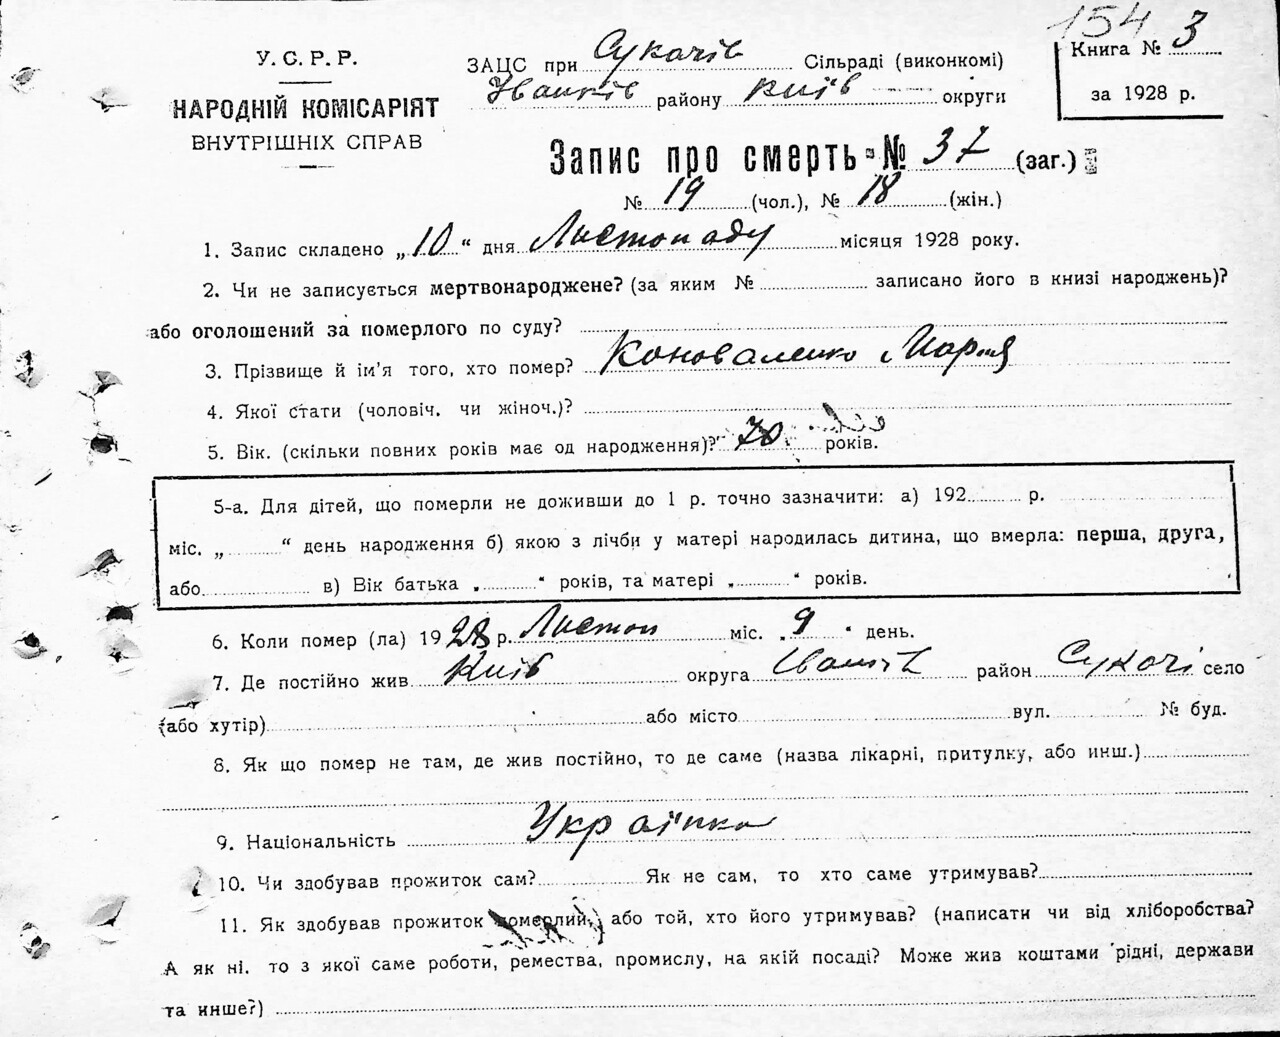 154
У. С. Р. Р.
НАРОДНІЙ КОМІСАРІЯТ
ВНУТРІШНІХ СПРАВ
ЗАЦС при Сукачів Сільраді (виконкомі)
Іванків району Київ округи
Книга № 3
за 1928 р.
Запис про смерть № 37 (заг.)
№ 19 (чол.), № 18 (жін.)
1. Запис складено „10“ дня Листопаду місяця 1928 року.
2. Чи не записується мертвонароджене? (за яким № записано його в книзі народжень)?
або оголошений за померлого по суду?
3. Прізвище й ім’я того, хто помер? Коноваленко Мария
4. Якої стати (чоловіч. чи жіноч.)?
5. Вік. (скільки повних років має од народження)? 70 років.
5-а. Для дітей, що померли не доживши до 1 р. точно зазначити: а) 192 р.
міс. „ “ день народження б) якою з лічби у матері народилась дитина, що вмерла: перша, друга,
або в) Вік батька „ “ років, та матері „ “ років.
6. Коли помер (ла) 1928 р. Листоп міс. „9“ день.
7. Де постійно жив Київ округа Іванків район Сукачі село
(або хутір) або місто вул. № буд.
8. Як що помер не там, де жив постійно, то де саме (назва лікарні, притулку, або инш.)
9. Національність Українка
10. Чи здобував прожиток сам? Як не сам, то хто саме утримував?
11. Як здобував прожиток померлий, або той, хто його утримував? (написати чи від хліборобства?
А як ні. то з якої саме роботи, ремества, промислу, на якій посаді? Може жив коштами рідні, держави
та инше?)